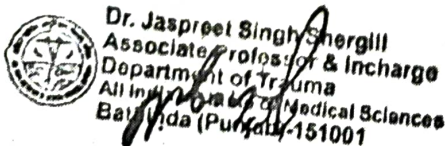 Dr. Jaspreet Singh Shergill
Associate Professor & Incharge
Department of Trauma
All India of Medical Sciences
Batinda (Punjab)-151001